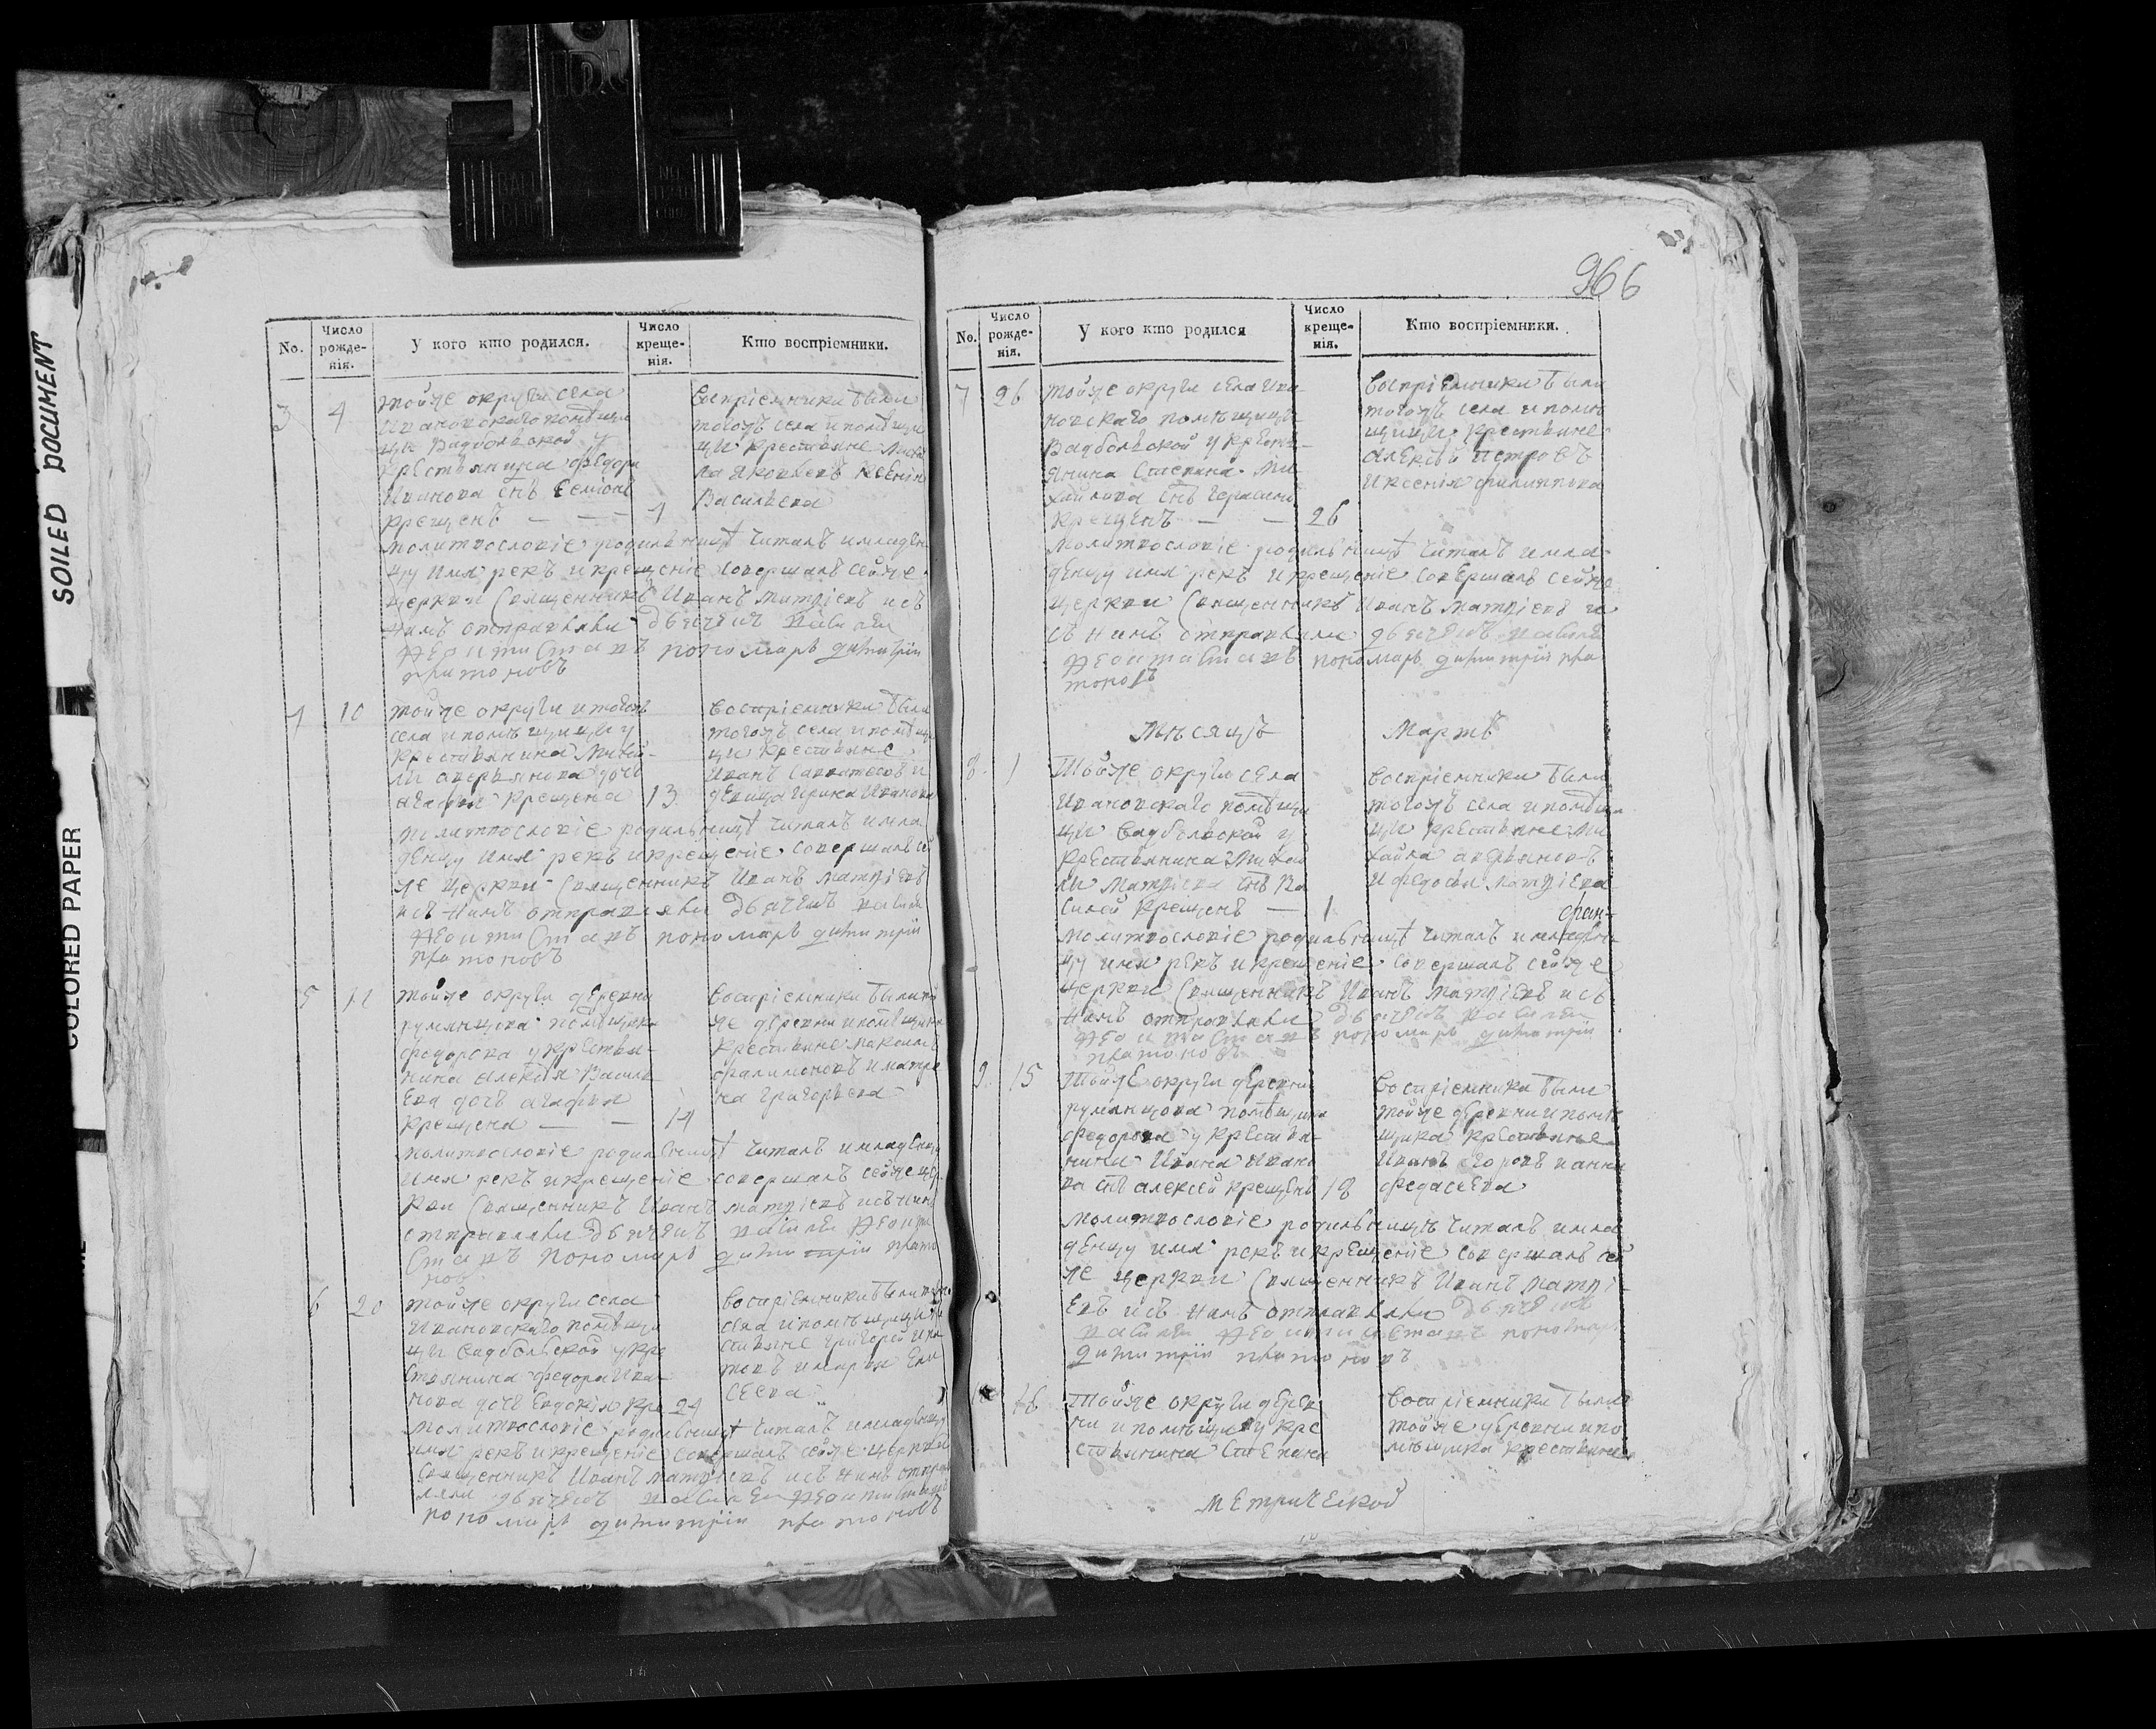 SOILED DOCUMENT
COLORED PAPER
966
No.
Число рожде-нія.
У кого кто родился.
Число креще-нія.
Кто воспріемники.
3
4
тойже округи села
Ивановскаго помѣщи
цы Вадбольской у
крестьянина Федора
Иванова снъ Семіонъ
крещенъ — —
7
воспріемники были
тогожъ села и помѣщи
цы крестьяне
ла Яковлевъ Ксенія
Васильева
молитвословіе родильницѣ читалъ и младен
цу имя рекъ и крещеніе совершалъ сейже
церкви священникъ Иванъ Матвіевъ и съ
нимъ отправляли дьячекъ Василей
пономарь димитрій
платоновъ
10
тойже округи и тогожъ
села и помѣщицы у
крестьянина Михай-
лы Аверьянова дочь
Агафья крещена
13
воспріемники были
тогожъ села и помѣщи
цы крестьяне
Иванъ и
девица Ирина Иванова
молитвословіе родильницѣ читалъ и мла
денцу имя рекъ и крещеніе совершалъ се
же церкви священникъ Иванъ Матвіевъ
и съ нимъ отправляли дьячекъ Василей
пономарь димитрій
платоновъ
5
12
тойже округи деревни
румянцова помѣщика
федорова у крестья-
нина Алексѣя Василь
ева дочь Агафья
крещена — —
14
воспріемники были той
же деревни и помѣщика
крестьяне Максимъ
Филимоновъ и Матре
на Григорьева
молитвословіе родильницѣ читалъ и младенцу
имя рекъ и крещеніе совершалъ сейже цер
кви священникъ Иванъ Матвіевъ и съ нимъ
отправляли дьячекъ Василей
пономарь димитрій плато
нов
6
20
тойже округи села
Ивановскаго помѣщи
цы Вадбольской у кре
стьянина Федора Ива
нова дочь Евдокія кре
24
воспріемники были тогожъ
села и помѣщицы кре
стьяне Григорей
и Марья Ели
сеева
молитвословіе родильницѣ читалъ и младенцу
имя рекъ и крещеніе совершалъ сейже церкви
священникъ Иванъ Матвіевъ и съ нимъ отправ
ляли дьячекъ Василей
пономарь димитрій платоновъ
No.
Число рожде-нія.
У кого кто родился
Число креще-нія.
Кто воспріемники.
7
26
тойже округи села Ива
новскаго помѣщицы
Вадбольской у кресть-
янина Степана Ми
хайлова снъ Герасимъ
крещенъ — —
26
воспріемники были
тогожъ села и помѣ
щицы крестьяне
Алексѣй Петровъ
и Ксенія Филиппова
молитвословіе родильницѣ читалъ и мла-
денцу имя рекъ и крещеніе совершалъ сейже
церкви священникъ Иванъ Матвіевъ и
съ нимъ отправляли дьячекъ Василей
пономарь димитрій пла
тоновъ
Мѣсяцъ Мартъ
8
1
Тойже округи села
Ивановскаго помѣщи
цы Вадбольской у
крестьянина Михай
лы Матвіева снъ Ва
силей крещенъ —
1
воспріемники были
тогожъ села и помѣщи
цы крестьяне Ми
хайла Аверьяновъ
и Федосья Матвіева
молитвословіе родильницѣ читалъ и младен-
цу имя рекъ и крещеніе совершалъ сейже
церкви священникъ Иванъ Матвіевъ и съ
нимъ отправляли дьячекъ Василей
пономарь димитрій
платоновъ
9
15
Тойже округи деревни
румянцова помѣщика
Федорова у крестья-
нина Ивана Ивано
ва снъ Алексей крещенъ
18
воспріемники были
тойже деревни и помѣ
щика крестьяне
Иванъ Егоровъ и Анна
Федасеева
молитвословіе родильницѣ читалъ и мла
денцу имя рекъ и крещеніе совершалъ сей
же церкви священникъ Иванъ Матві-
евъ и съ нимъ отправляли дьячекъ
Василей пономарь
димитрій платоновъ
16
Тойже округи дерев
ни и помѣщика у кре
стьянина Степана
воспріемники были
тойже деревни и по
мѣщика крестьяне
Метрической